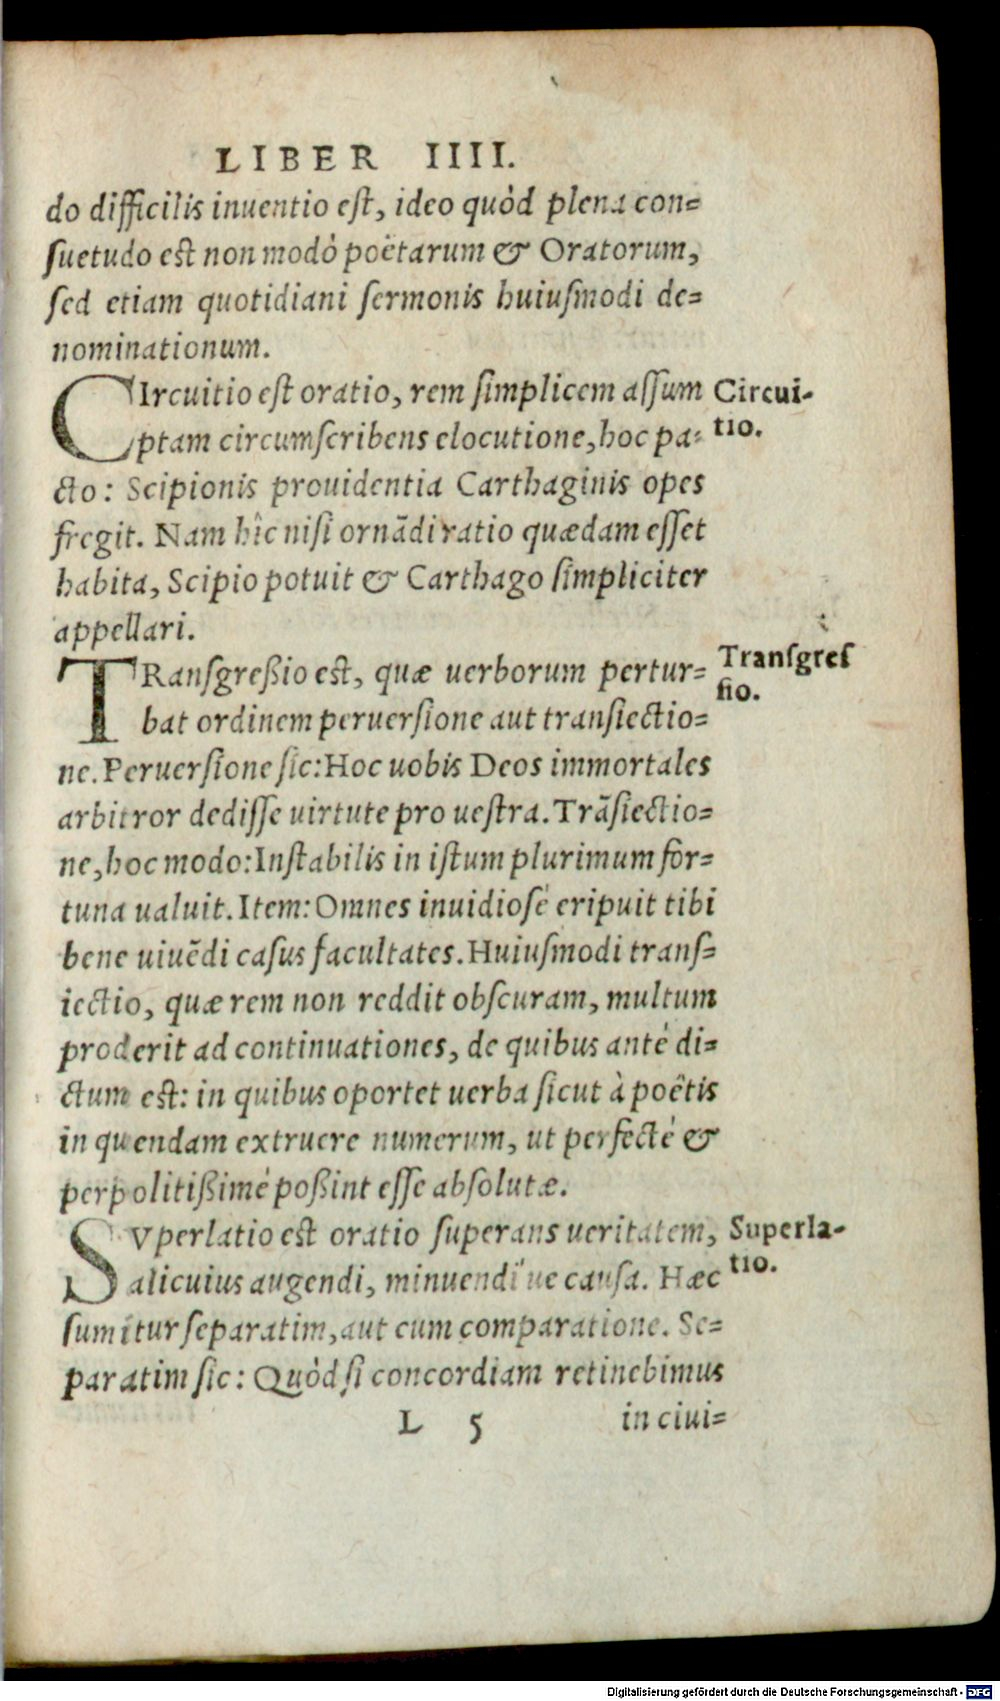 LIBER IIII.
do difficilis inuentio est, ideo quòd plena con=
suetudo est non modò poëtarum & Oratorum,
sed etiam quotidiani sermonis huiusmodi de=
nominationum.
CIrcuitio est oratio, rem simplicem assum
Circui-
ptam circumscribens elocutione, hoc pa=
tio.
cto: Scipionis prouidentia Carthaginis opes
fregit. Nam hîc nisi ornãdi ratio quædam esset
habita, Scipio potuit & Carthago simpliciter
appellari.
TRansgreßio est, quæ uerborum pertur=
Transgres
bat ordinem peruersione aut transiectio=
sio.
ne. Peruersione sic: Hoc uobis Deos immortales
arbitror dedisse uirtute pro uestra. Trãsiectio=
ne, hoc modo: Instabilis in istum plurimum for=
tuna ualuit. Item: Omnes inuidiosè eripuit tibi
bene uiuẽdi casus facultates. Huiusmodi trans=
iectio, quæ rem non reddit obscuram, multum
proderit ad continuationes, de quibus antè di=
ctum est: in quibus oportet uerba sicut à poëtis
in quendam extruere numerum, ut perfectè &
perpolitißimè poßint esse absolutæ.
SVperlatio est oratio superans ueritatem,
Superla-
alicuius augendi, minuendi ue causa. Hæc
tio.
sumitur separatim, aut cum comparatione. Se=
paratim sic: Quòd si concordiam retinebimus
L 5 in ciui=
Digitalisierung gefördert durch die Deutsche Forschungsgemeinschaft - DFG